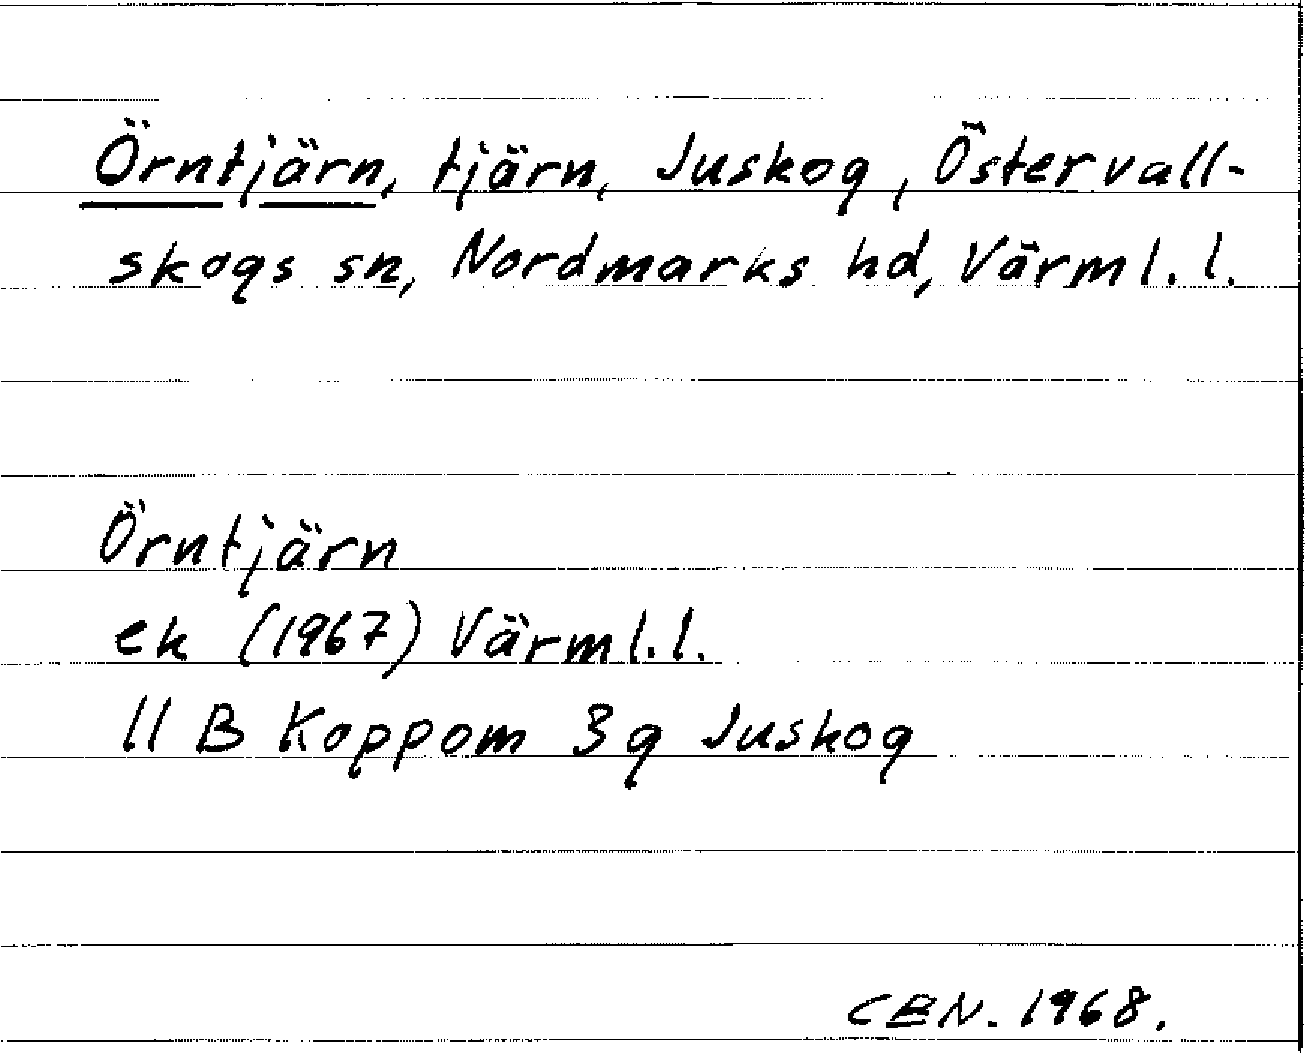 Örntjärn, tjärn, Juskog, Östervall-
skogs sn, Nordmarks hd, Värml. l.
Örntjärn
ek (1967) Värml.l.
11 B Koppom 3 g Juskog
CEN. 1968.